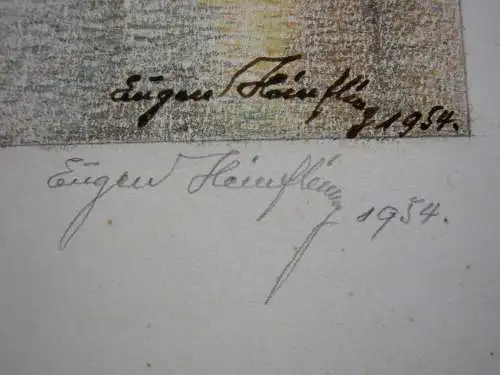 Eugen Heinfling 1954.
Eugen Heinfling 1954.